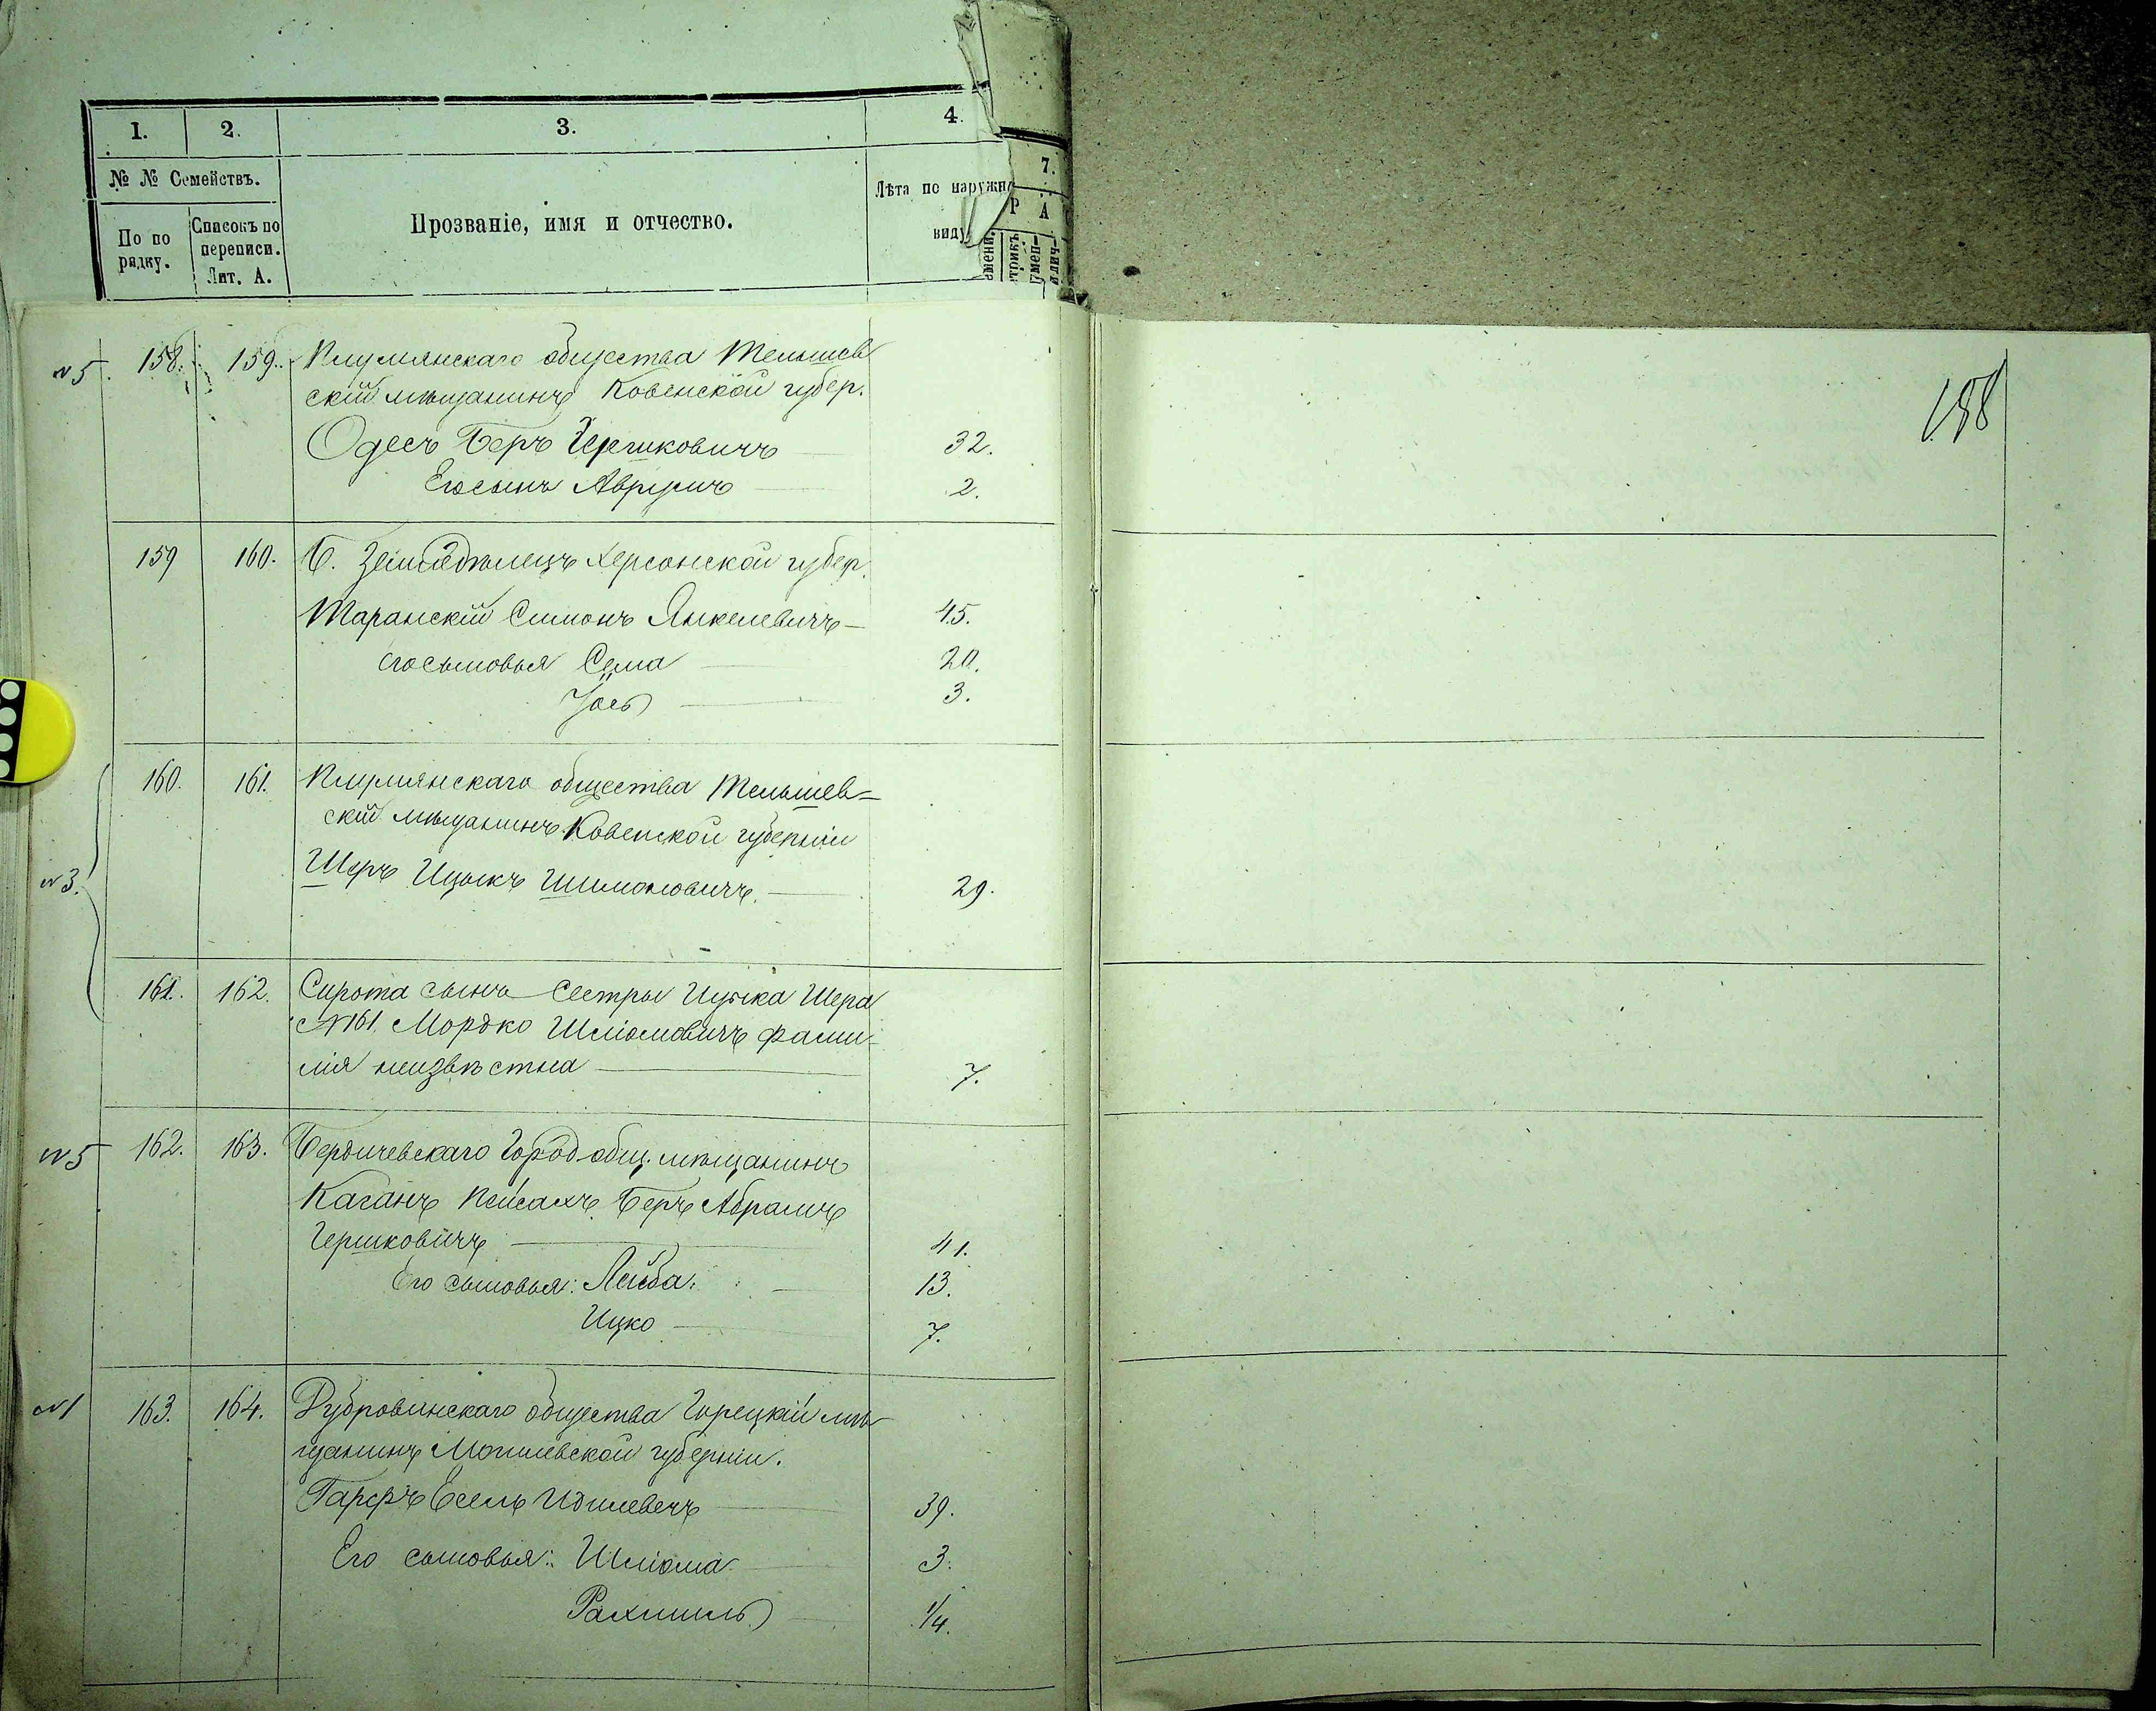 1. 2. 3. 4.
7.
№ № Семействъ.
По по рядку.
Списокъ по переписи. Лит. А.
Прозваніе, имя и отчество.
Лѣта по наружн
виду
Р А
№5 158. 159. Плумянскаго общества Тельшев
скій мѣщанинъ Ковенской губер.
Одесъ Беръ Гершковичъ 32.
Его сынъ Аврумъ 2.
159 160. Б. Земледѣлецъ Херсонской губер.
Таранскій Симонъ Янкелевичъ — 45.
его сыновья Сема 20.
Іось 3.
160. 161. Плумянскаго общества Тельшев-
скій мѣщанинъ Ковенской губерніи
№3. Шеръ Ицыкъ Шимоновичъ. 29.
161. 162. Сирота сынъ сестры Ицыка Шера
№161. Мордко Шліомовичъ фами-
лія неизвѣстна 7.
№5 162. 163. Бердичевскаго Город. общ. мѣщанинъ
Каганъ Пейсахъ Беръ Абрамъ
Гершковичъ 41.
Его сыновья: Лейба. 13.
Ицко 7.
№1 163. 164. Дубровинскаго общества Горецкій мѣ-
щанинъ Могилевской губерніи.
Гарфъ Есель Идилевичъ 39.
Его сыновья: Шліома 3.
Рахмиль 1/4.
158